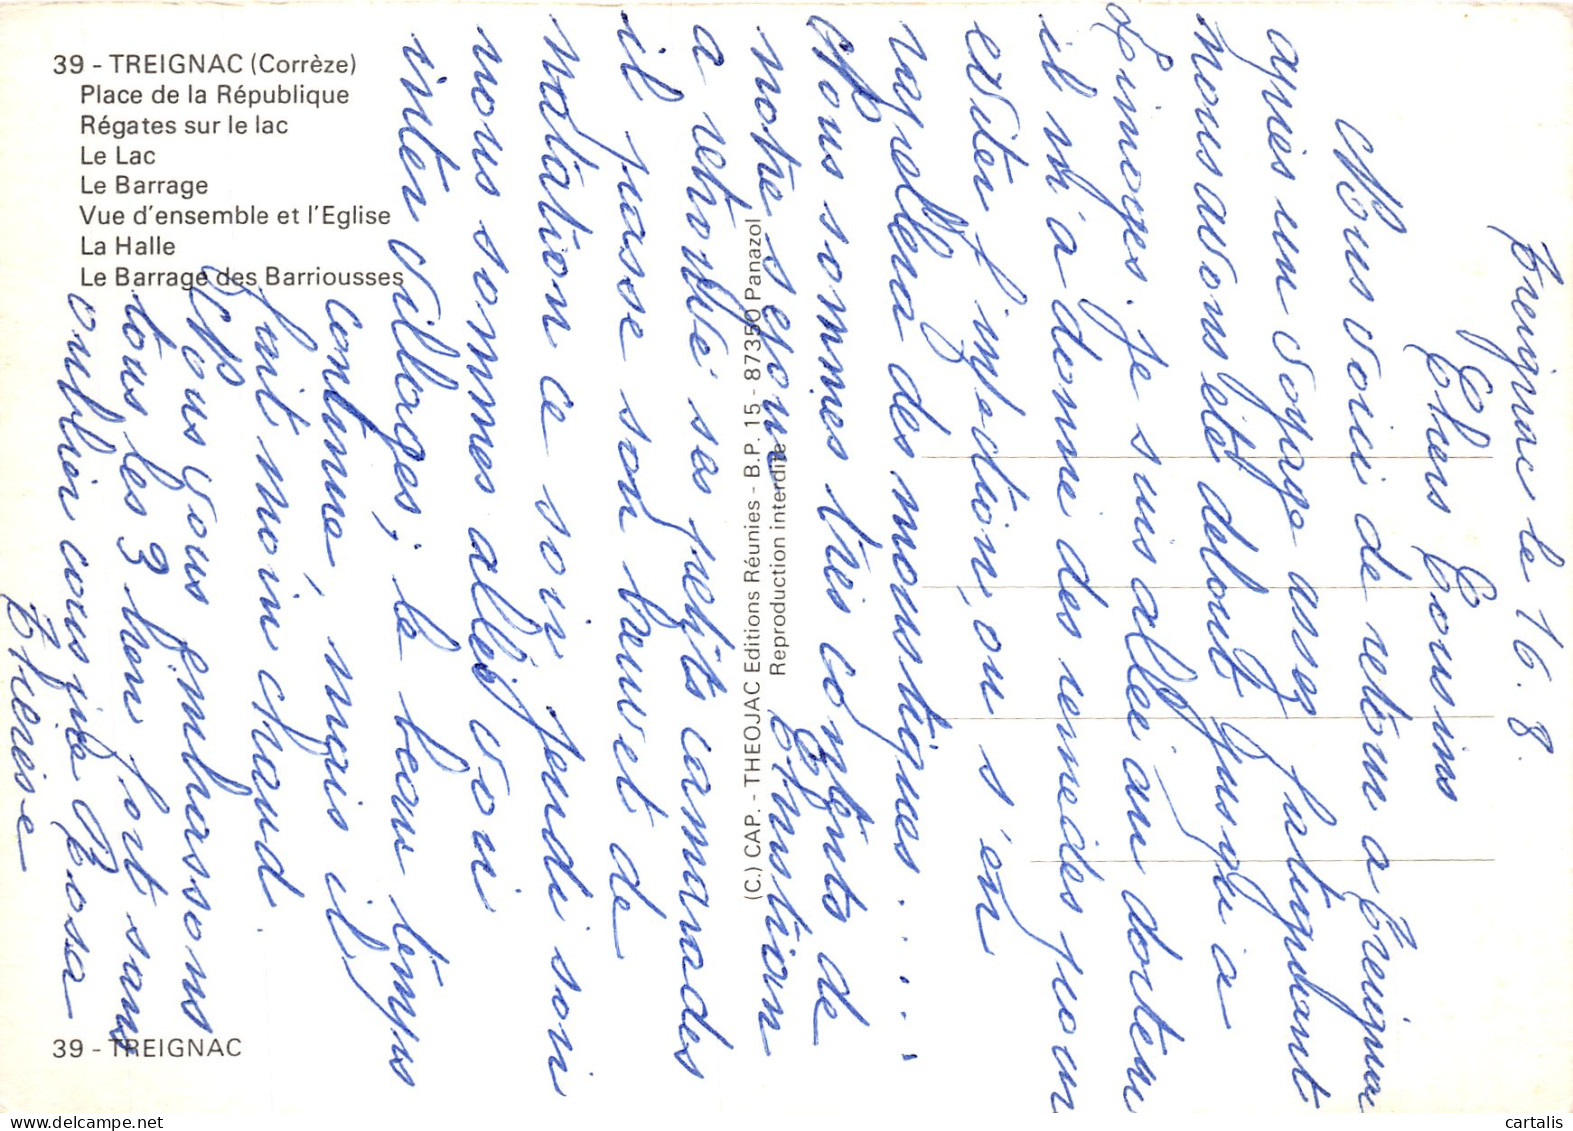 39 - TREIGNAC (Corrèze)
Place de la République
Régates sur le lac
Le Lac
Le Barrage
Vue d'ensemble et l'Eglise
La Halle
Le Barrage des Barriousses
39 - TREIGNAC
(C.) CAP. - THEOJAC Editions Réunies - B.P. 15 - 87350 Panazol
Reproduction interdite
Treignac le 16.8.
Chers Cousins
Nous voici de retour a Treignac
après un voyage assez fatiguant
nous avons été debout jusqu'a
Limoges. je suis allée au docteur
il m'a donné des remèdes pour
eviter l'infection, on s'en
rapellera des moustiques . . . .
Nous sommes très contents de
notre sejour Christian
a retrouvé ses petits camarades
il passe son brevet de
natation ce soir jeudi soir
nous sommes allés voir
inter villages, le beau temps
continue, mais il
fait moin chaud.
Nous vous embrassons
tous les 3 bien fort sans
oublier cousine Rosa
Therese
cartalis.com